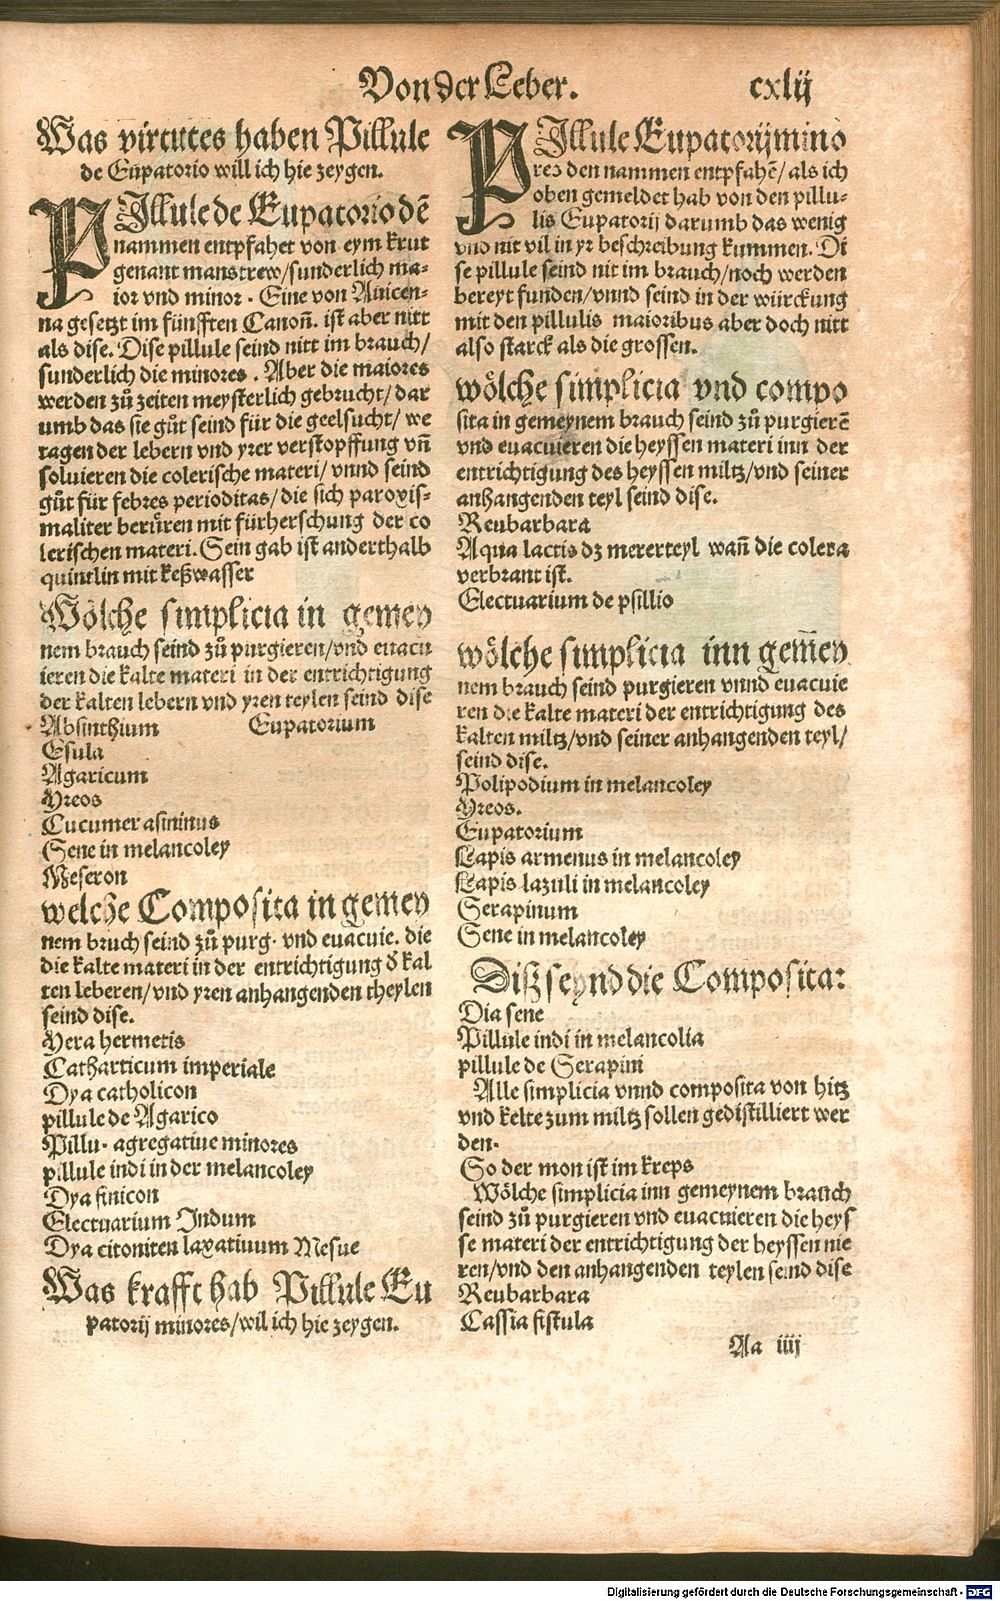 Von der Leber.
cxlij
Was virtutes haben Pillule
de Eupatorio will ich hie zeygen.
PIllule de Eupatorio dē
nammen entpfahet von eym krut
genant manstrew/sunderlich ma-
ior vnd minor. Eine von Auicen-
na gesetzt im fünfften Canoñ. ist aber nitt
als dise. Dise pillule seind nitt im brauch/
sunderlich die minores. Aber die maiores
werden zů zeiten meysterlich gebrucht/dar
umb das sie gůt seind für die geelsucht/ we
tagen der lebern vnd yrer verstopffung vñ
soluieren die colerische materi/ vnnd seind
gůt für febres perioditas/die sich paroxis-
maliter berüren mit fürherschung der co
lerischen materi. Sein gab ist anderthalb
quintlin mit keßwasser
Wölche simplicia in gemey
nem brauch seind zů purgieren/vnd euacu
ieren die kalte materi in der entrichtigung
der kalten lebern vnd yren teylen seind dise
Absinthium Eupatorium
Esula
Agaricum
Yreos
Cucumer asininus
Sene in melancoley
Meseron
welche Composita in gemey
nem bruch seind zů purg. vnd euacuie. die
die kalte materi in der entrichtigung d̕ kal
ten leberen/vnd yren anhangenden theylen
seind dise.
Yera hermetis
Catharticum imperiale
Dya catholicon
pillule de Agarico
Pillu. agregatiue minores
pillule indi in der melancoley
Dya finicon
Electuarium Indum
Dya citoniten laxatiuum Mesue
Was krafft hab Pillule Eu
patorij minores/wil ich hie zeygen.
PIllule Eupatorij mino
res den nammen entpfahē/als ich
oben gemeldet hab von den pillu-
lis Eupatorij darumb das wenig
vnd nit vil in yr beschreibung kummen. Di
se pillule seind nit im brauch/noch werden
bereyt funden/vnnd seind in der würckung
mit den pillulis maioribus aber doch nitt
also starck als die grossen.
wölche simplicia vnd compo
sita in gemeynem brauch seind zů purgierē
vnd euacuieren die heyssen materi inn der
entrichtigung des heyssen miltz/vnd seiner
anhangenden teyl seind dise.
Reubarbara
Aqua lactis dz mererteyl wañ die colera
verbrant ist.
Electuarium de psillio
wölche simplicia inn gem̄ey
nem brauch seind purgieren vnnd euacuie
ren die kalte materi der entrichtigung des
kalten miltz/vnd seiner anhangenden teyl/
seind dise.
Polipodium in melancoley
Yreos.
Eupatorium
Lapis armenus in melancoley
Lapis lazuli in melancoley
Serapinum
Sene in melancoley
Diß seynd die Composita:
Dia sene
Pillule indi in melancolia
pillule de Serapini
Alle simplicia vnnd composita von hitz
vnd kelte zum miltz sollen gedistilliert wer
den.
So der mon ist im kreps
Wölche simplicia inn gemeynem brauch
seind zů purgieren vnd euacuieren die heys
se materi der entrichtigung der heyssen nie
ren/vnd den anhangenden teylen seind dise
Reubarbara
Cassia fistula
Aa iiij
Digitalisierung gefördert durch die Deutsche Forschungsgemeinschaft - DFG